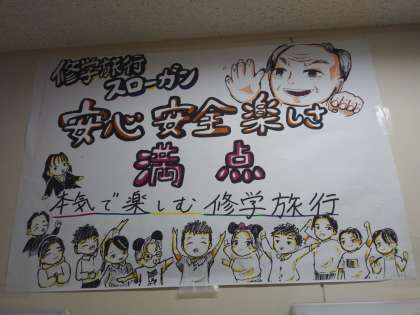 修学旅行
スローガン
安心 安全 楽しさ
満点
本気で楽しむ修学旅行